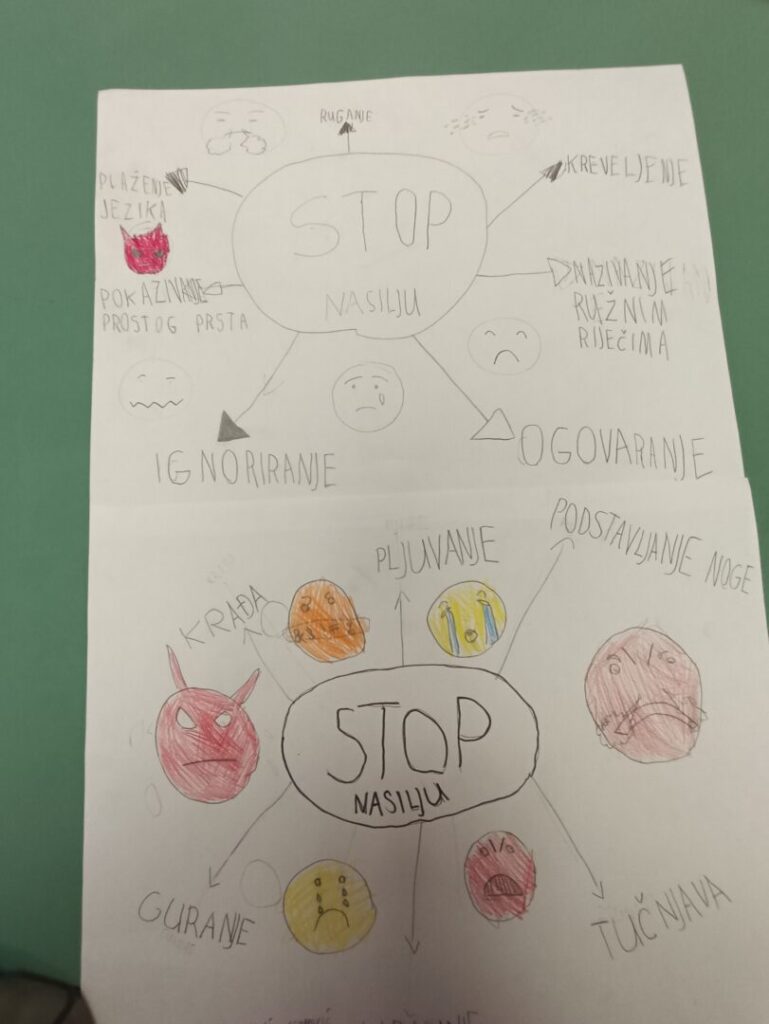 RUGANJE
KREVELJENJE
PLAŽENJE
JEZIKA
STOP
NASILJU
NAZIVANJE
RUŽNIM
RIJEČIMA
POKAZIVANJE
PROSTOG PRSTA
IGNORIRANJE
OGOVARANJE
KRAĐA
PLJUVANJE
PODSTAVLJANJE NOGE
STOP
NASILJU
GURANJE
TUČNJAVA